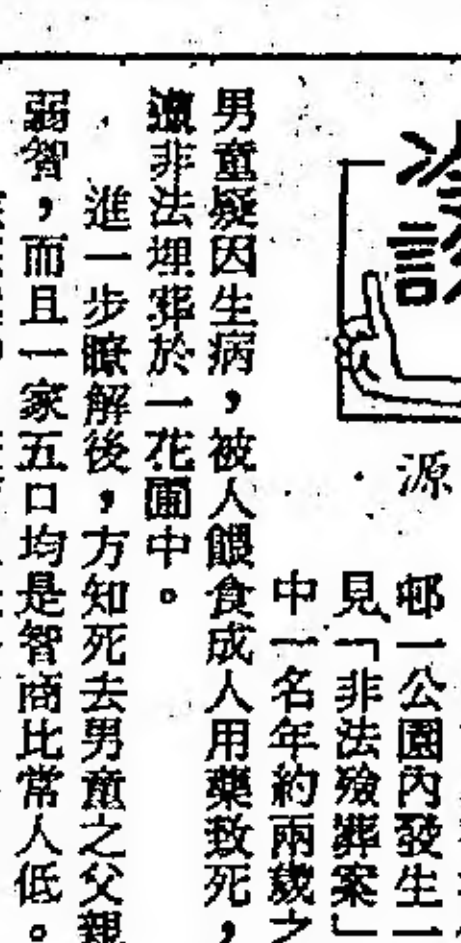 源
邨一公園內發生一
見「非法殮葬案」
中一名年約兩歲之
男童疑因生病，被人餵食成人用藥致死，
遭非法埋葬於一花圃中。
進一步瞭解後，方知死去男童之父親
弱智，而且一家五口均是智商比常人低。